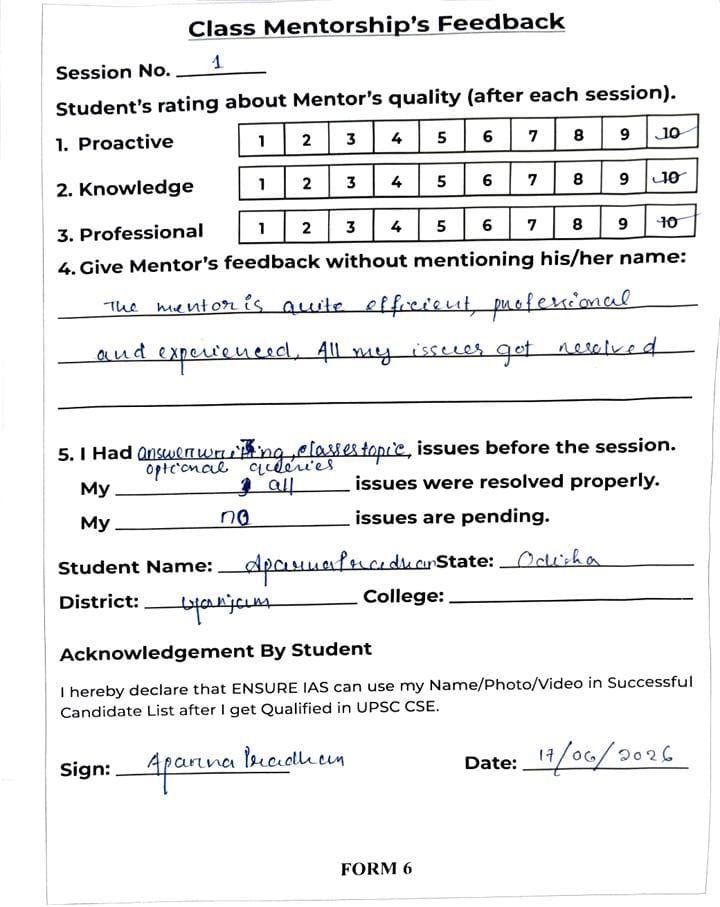 Class Mentorship's Feedback
Session No. 1
Student's rating about Mentor's quality (after each session).
1. Proactive 1 2 3 4 5 6 7 8 9 10
2. Knowledge 1 2 3 4 5 6 7 8 9 10
3. Professional 1 2 3 4 5 6 7 8 9 10
4. Give Mentor's feedback without mentioning his/her name:
The mentor is quite efficient, professional
and experienced, All my issues got resolved
5. I Had answerwriting, classes topic, issues before the session.
optional queries
My all issues were resolved properly.
My no issues are pending.
Student Name: Aparna Pradhan State: Odisha
District: Ganjam College:
Acknowledgement By Student
I hereby declare that ENSURE IAS can use my Name/Photo/Video in Successful
Candidate List after I get Qualified in UPSC CSE.
Sign: Aparna Pradhan Date: 17/06/2026
FORM 6